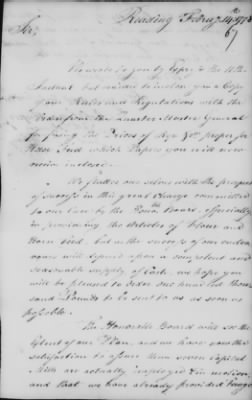 Reading Februy 14th 1778
67
Sir,
We wrote to you by Express the 11th
Instant but omitted to inclose you a Copy
of our Rules and Regulations with the
Order from the Quarter Master General
for fixing the Prices of Rye &c. proper for
Horse Feed which Papers you will now
receive inclosed.
We flatter ourselves with the prospect
of success in this great Charge committed
to our Care by the Hon. Board, especially
in providing the Articles of Flour and
Horn Cattle, but as the success of our endea-
vours will depend upon a competent and
seasonable supply of Cash, we hope you
will be pleased to order one hundred thou-
sand Pounds to be sent to us as soon as
possible.
The Honorable Board will see the
Extent of our Plan, and we have now the
satisfaction to assure them seven Capital
Mills are actually employed & in motion,
and that we have already provided